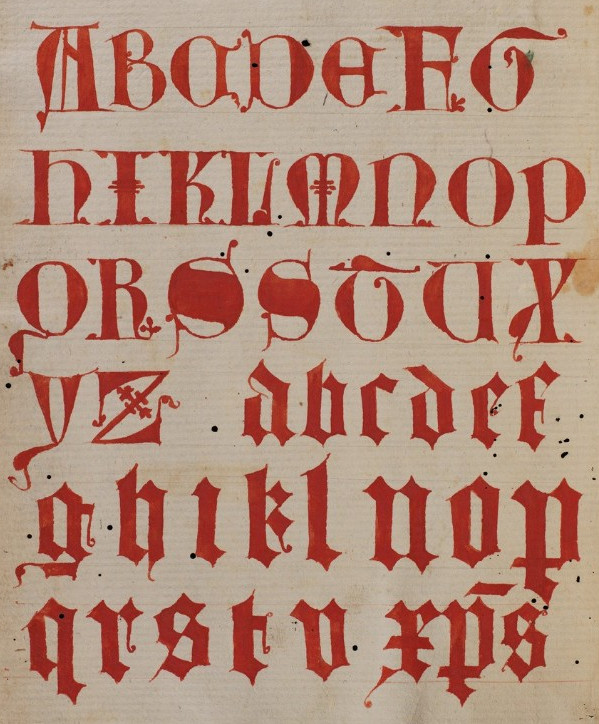 A B C D E F G
H I K L M N O P
Q R S S T U X
Y Z a b c d e f
g h i k l n o p
q r s t v xp̄s